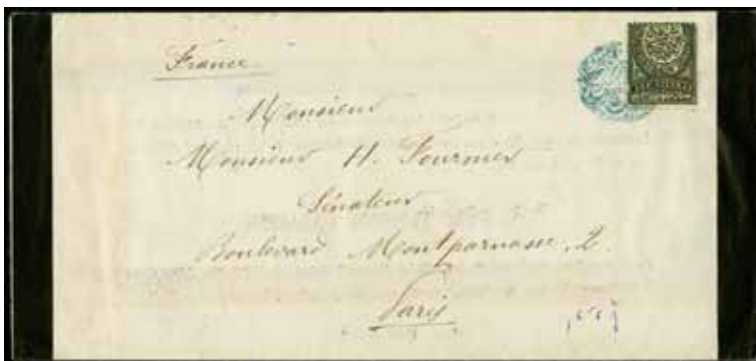 France
Monsieur
Monsieur H. Fournier
Sénateur
Boulevard Montparnasse, 2.
Paris